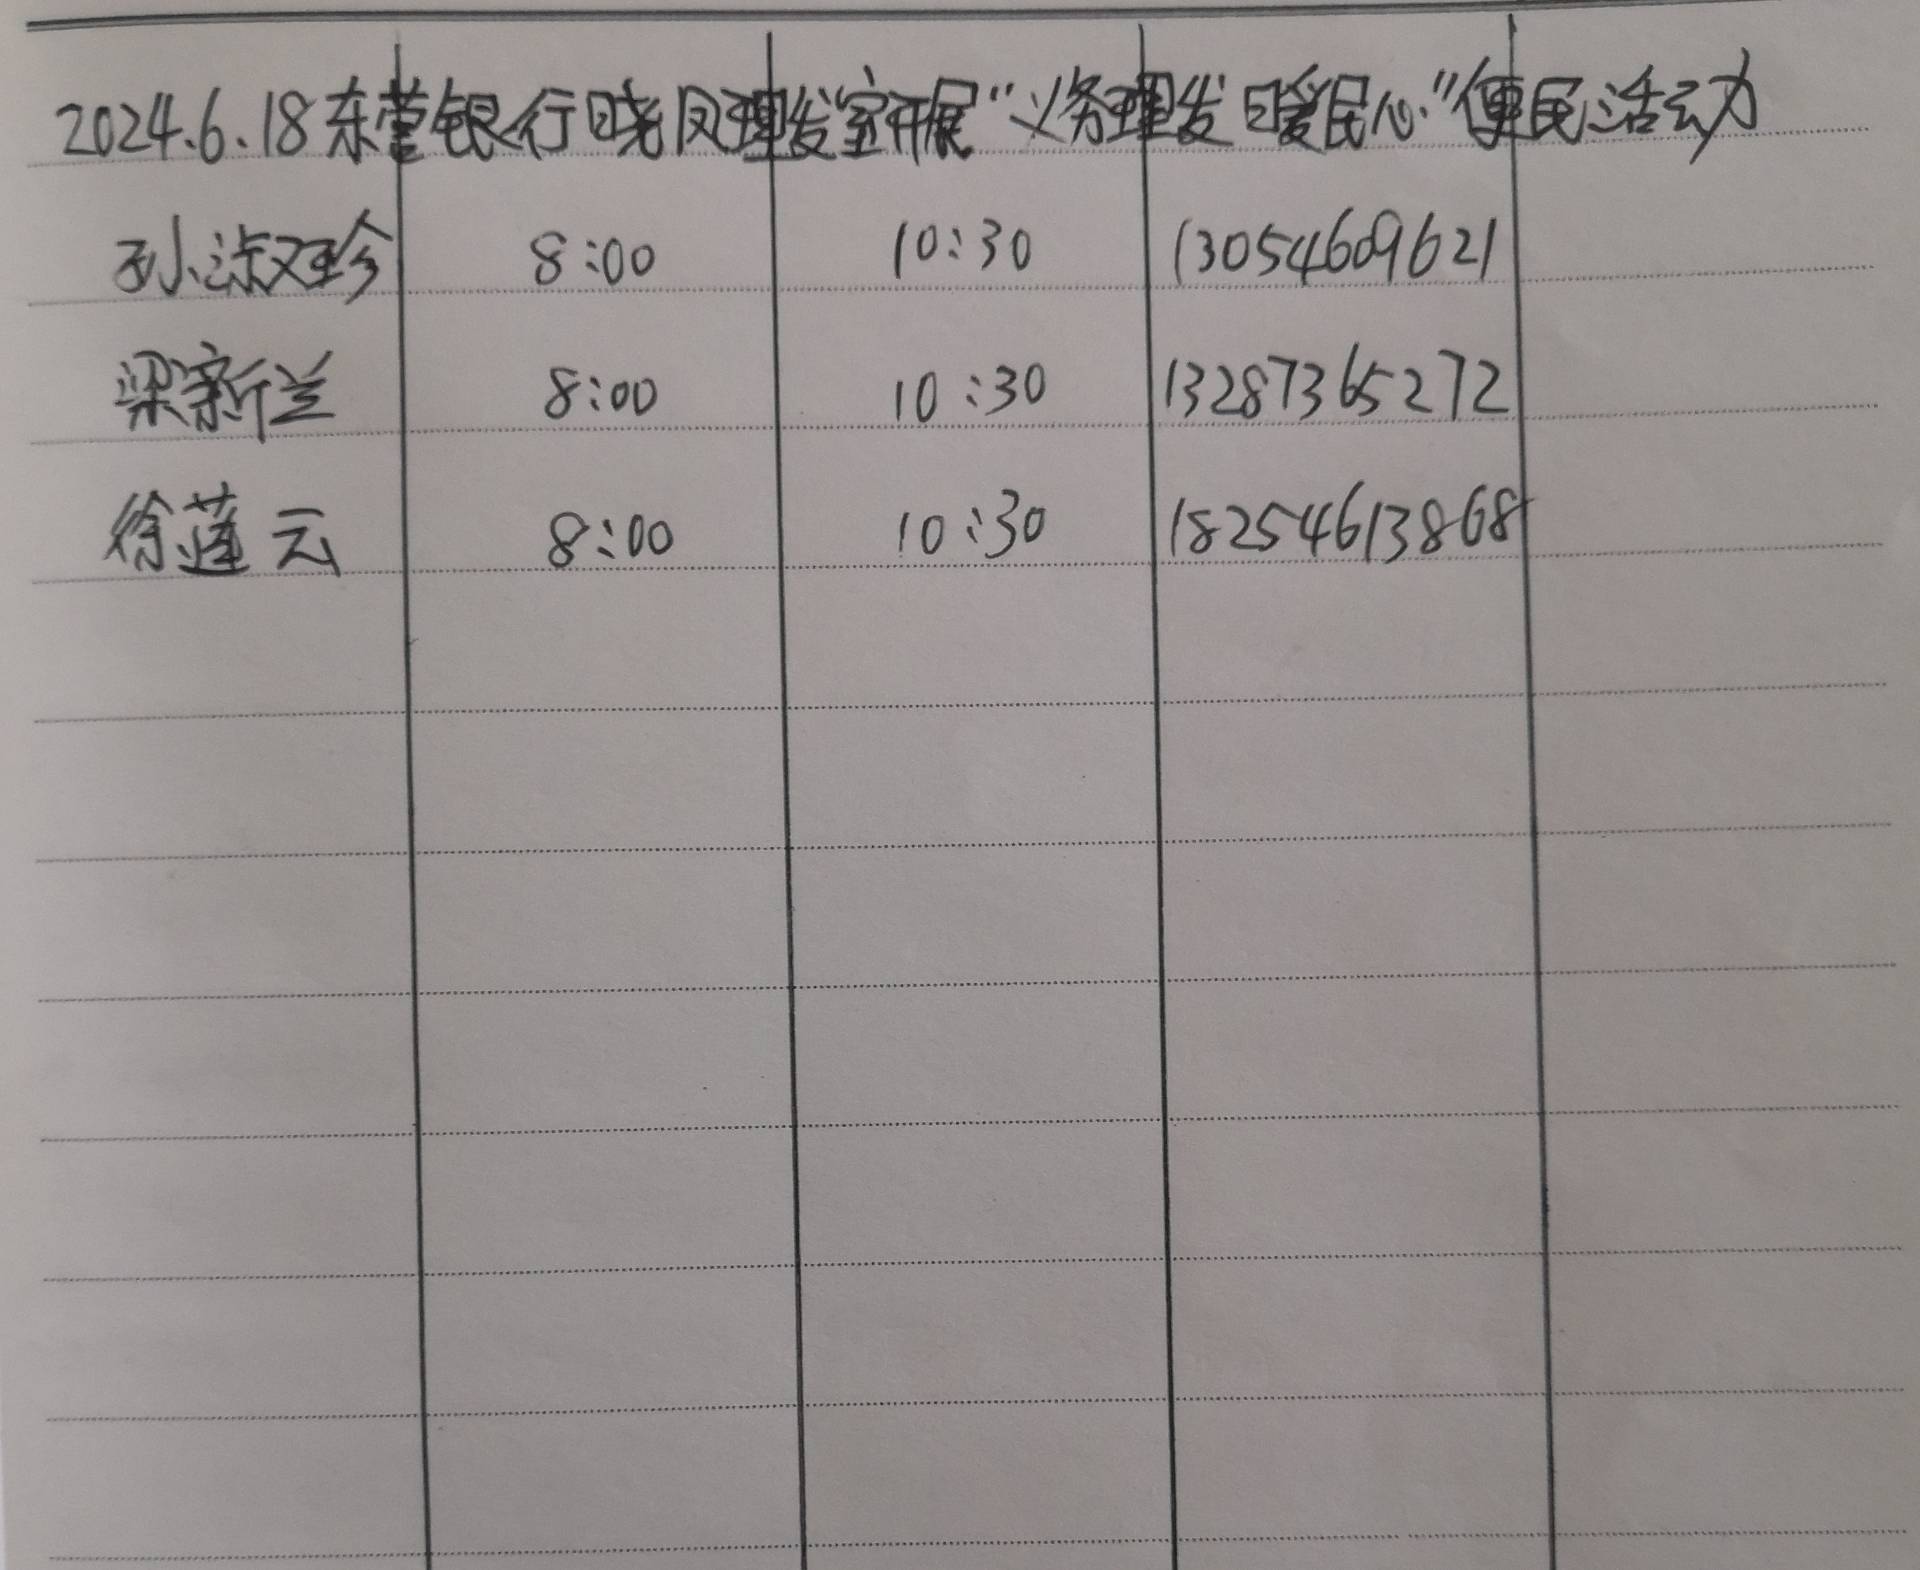 2024.6.18东营银行晓凤理发室开展“义务理发 暖民心”便民活动
孙淑珍 8:00 10:30 13054609621
梁新兰 8:00 10:30 13287365272
徐莲云 8:00 10:30 18254613868